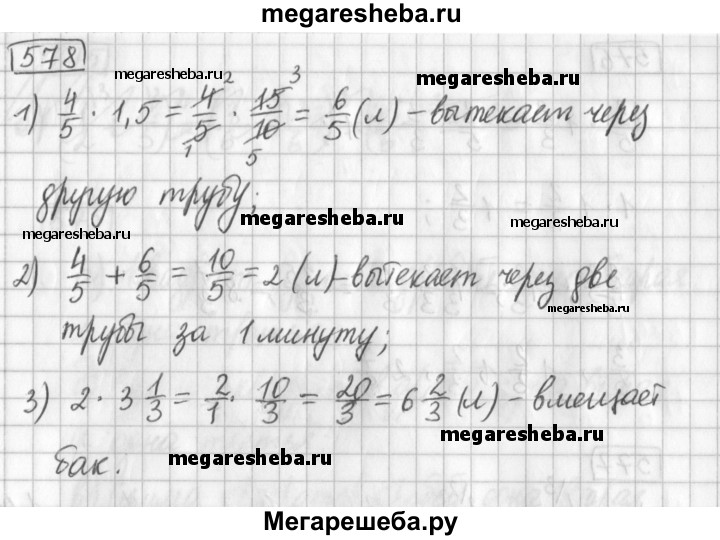 megaresheba.ru
578
megaresheba.ru
megaresheba.ru
1) 4/5 · 1,5 = 4/5 · 15/10 = 6/5 (л) – вытекает через
2 3
1 5
другую трубу;
megaresheba.ru
megaresheba.ru
megaresheba.ru
2) 4/5 + 6/5 = 10/5 = 2 (л) – вытекает через две
megaresheba.ru
трубы за 1 минуту;
3) 2 · 3 1/3 = 2/1 · 10/3 = 20/3 = 6 2/3 (л) – вмещает
megaresheba.ru
бак.
megaresheba.ru
Мегарешеба.ру